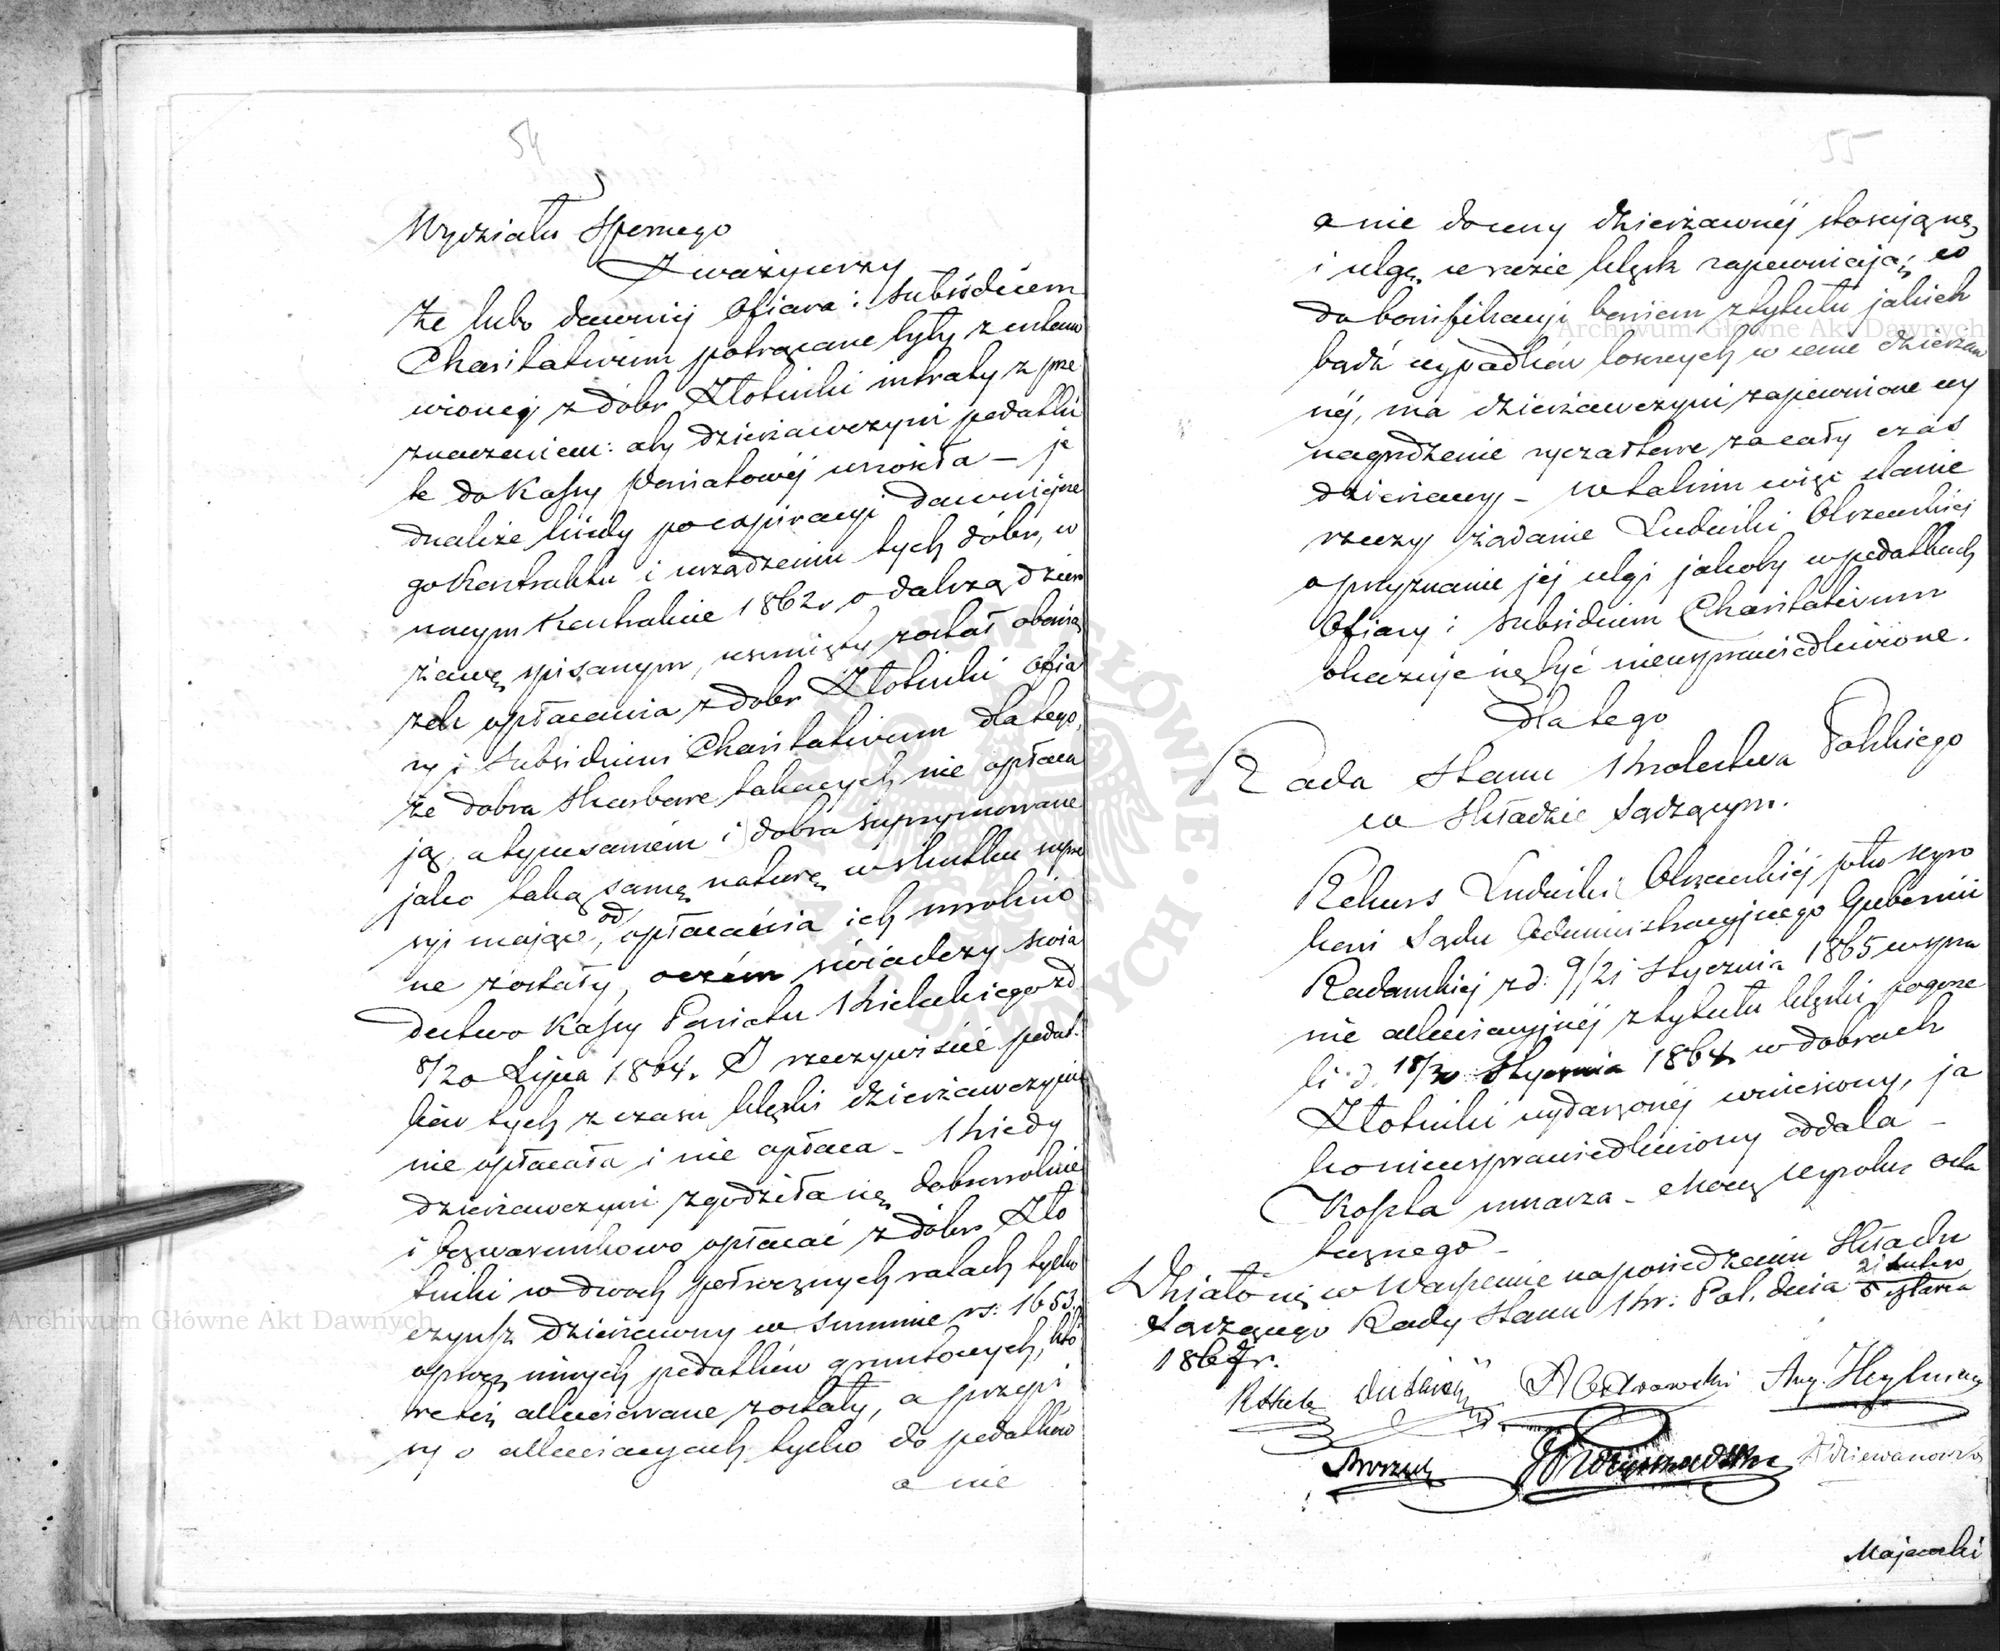 54
Wydziału Spornego
Zważywszy
że lubo dawniej Ofiara i Subsidium
Charitativum potrącane były z ustano
wionej z dóbr Złotniki intraty z prze
znaczeniem: aby dzierżawczyni podatki
te do Kassy Powiatowej wnosiła – je
dnakże kiedy po expiracyi dawniejsze
go Kontraktu i urządzeniu tych dóbr, w
nowym Kontrakcie 1862 r o dalszą dzier
żawę spisanym, usunięty został obowią
zek opłacania z dóbr Złotniki Ofia
ry i Subsidium Charitativum dla tego,
że dobra skarbowe takowych nie opłaca
ją, a tym samém i dobra suprymowane
jako taką samą naturę w skutku supre
syi mające, od opłacania ich uwolnio
ne zostały, oczém świadczy świa
dectwo Kassy Powiatu Kieleckiego z d
8/20 Lipca 1864. I rzeczywiście podat
ków tych z czasu klęski dzierżawczyni
nie opłacała i nie opłaca – Kiedy
dzierżawczyni zgodziła się dobrowolnie
i bezwarunkowo opłacać z dóbr Zło
tniki w dwoch półrocznych ratach tylko
czynsz dzierżawny w summie rs: 1653.
oprócz innych podatków gruntowych, któ
re też allewiowane zostały, a przepi
sy o allewiacyach tylko do podatków
a nie
55
a nie do ceny dzierżawnéj stosują się
i ulgę w razie klęsk zapewniają; co
do bonifikacyi bowiem z tytułu jakich
bądź wypadków losowych w cenie dzierżaw
néj, ma dzierżawczyni zapewnione wy
nagrodzenie ryczałtowe za cały czas
dzierżawy – w takim więc stanie
rzeczy żądanie Ludwiki Olszewskiéj
o przyznanie jej ulgi jakoby w podatkach
Ofiary i Subsidium Charitativum
okazuje się być nieusprawiedliwione.
Dla tego
Rada Stanu Królestwa Polskiego
w Składzie Sądzącym.
Rekurs Ludwiki Olszewskiéj od wyro
ku Sądu Administracyjnego Gubernii
Radomskiej z d: 9/21 Stycznia 1865 w spra
wie allewiacyjnéj z tytułu klęski pogorze
li d. 18/30 Stycznia 1864 w dobrach
Złotniki wydarzonéj wniesiony, ja
ko nieusprawiedliwiony oddala –
Koszta umarza – mocą wyroku osta
tecznego –
Działo się w Warszawie na posiedzeniu Składu
Sądzącego Rady Stanu Kr: Pol. dnia 21 Lutego
5 Marca
1867 r.
A Ostrowski Aug. Heylman
Majewski